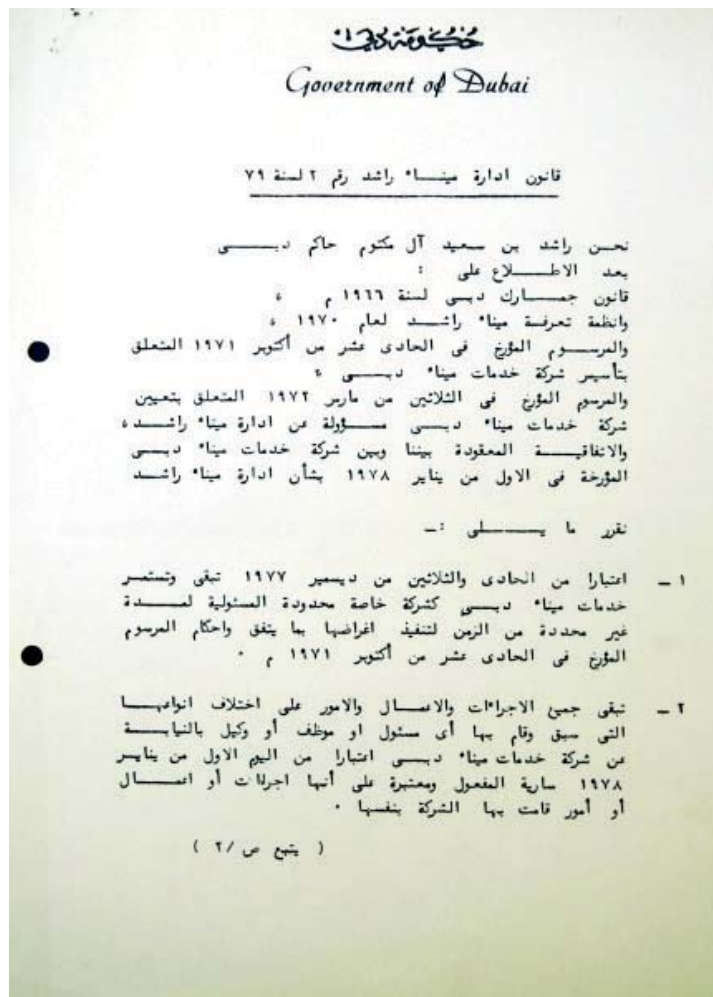 حكومة دبي
Government of Dubai
قانون ادارة مينــاء راشد رقم ٢ لسنة ٧٩
نحــن راشد بن سعيد آل مكتوم حاكم دبــــي
بعد الاطــــلاع على :
قانون جمــارك دبــي لسنة ١٩٦٦ م ،
وانظمة تعرفــة ميناء راشــد لعام ١٩٧٠ ،
والمرســـوم المؤرخ في الحادى عشر من أكتوبر ١٩٧١ المتعلق
بتأسيس شركة خدمات ميناء دبــــي ،
والمرسوم المؤرخ في الثلاثين من مارس ١٩٧٢ المتعلق بتعيين
شركة خدمات ميناء دبــــي مســؤولة عن ادارة ميناء راشــد،
والاتفاقيــــة المعقودة بيننا وبين شركة خدمات ميناء دبــــي
المؤرخة في الاول من يناير ١٩٧٨ بشأن ادارة ميناء راشــد
نقرر ما يـــــلى :ـ
١ ـ اعتبارا من الحادى والثلاثين من ديسمبر ١٩٧٧ تبقى وتستمر
خدمات ميناء دبــــي كشركة خاصة محدودة المسئولية لمــــدة
غير محددة من الزمن لتنفيذ اغراضها بما يتفق واحكام المرسوم
المؤرخ في الحادى عشر من أكتوبر ١٩٧١ م .
٢ ـ تبقى جميع الاجراءات والاعمــال والامور على اختلاف انواعهــا
التى سبق وقام بها أى مسئول او موظف أو وكيل بالنيابــــة
عن شركة خدمات ميناء دبــــي اعتبارا من اليوم الاول من ينايــر
١٩٧٨ سارية المفعول ومعتبرة على أنها اجراءات أو اعمــــال
أو أمور قامت بها الشركة بنفسها .
( يتبع ص /٢ )